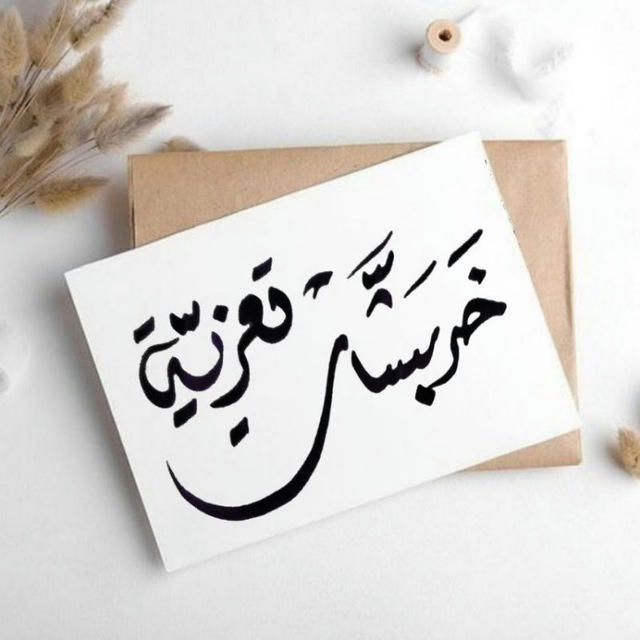 خَربَشات تعزيّة